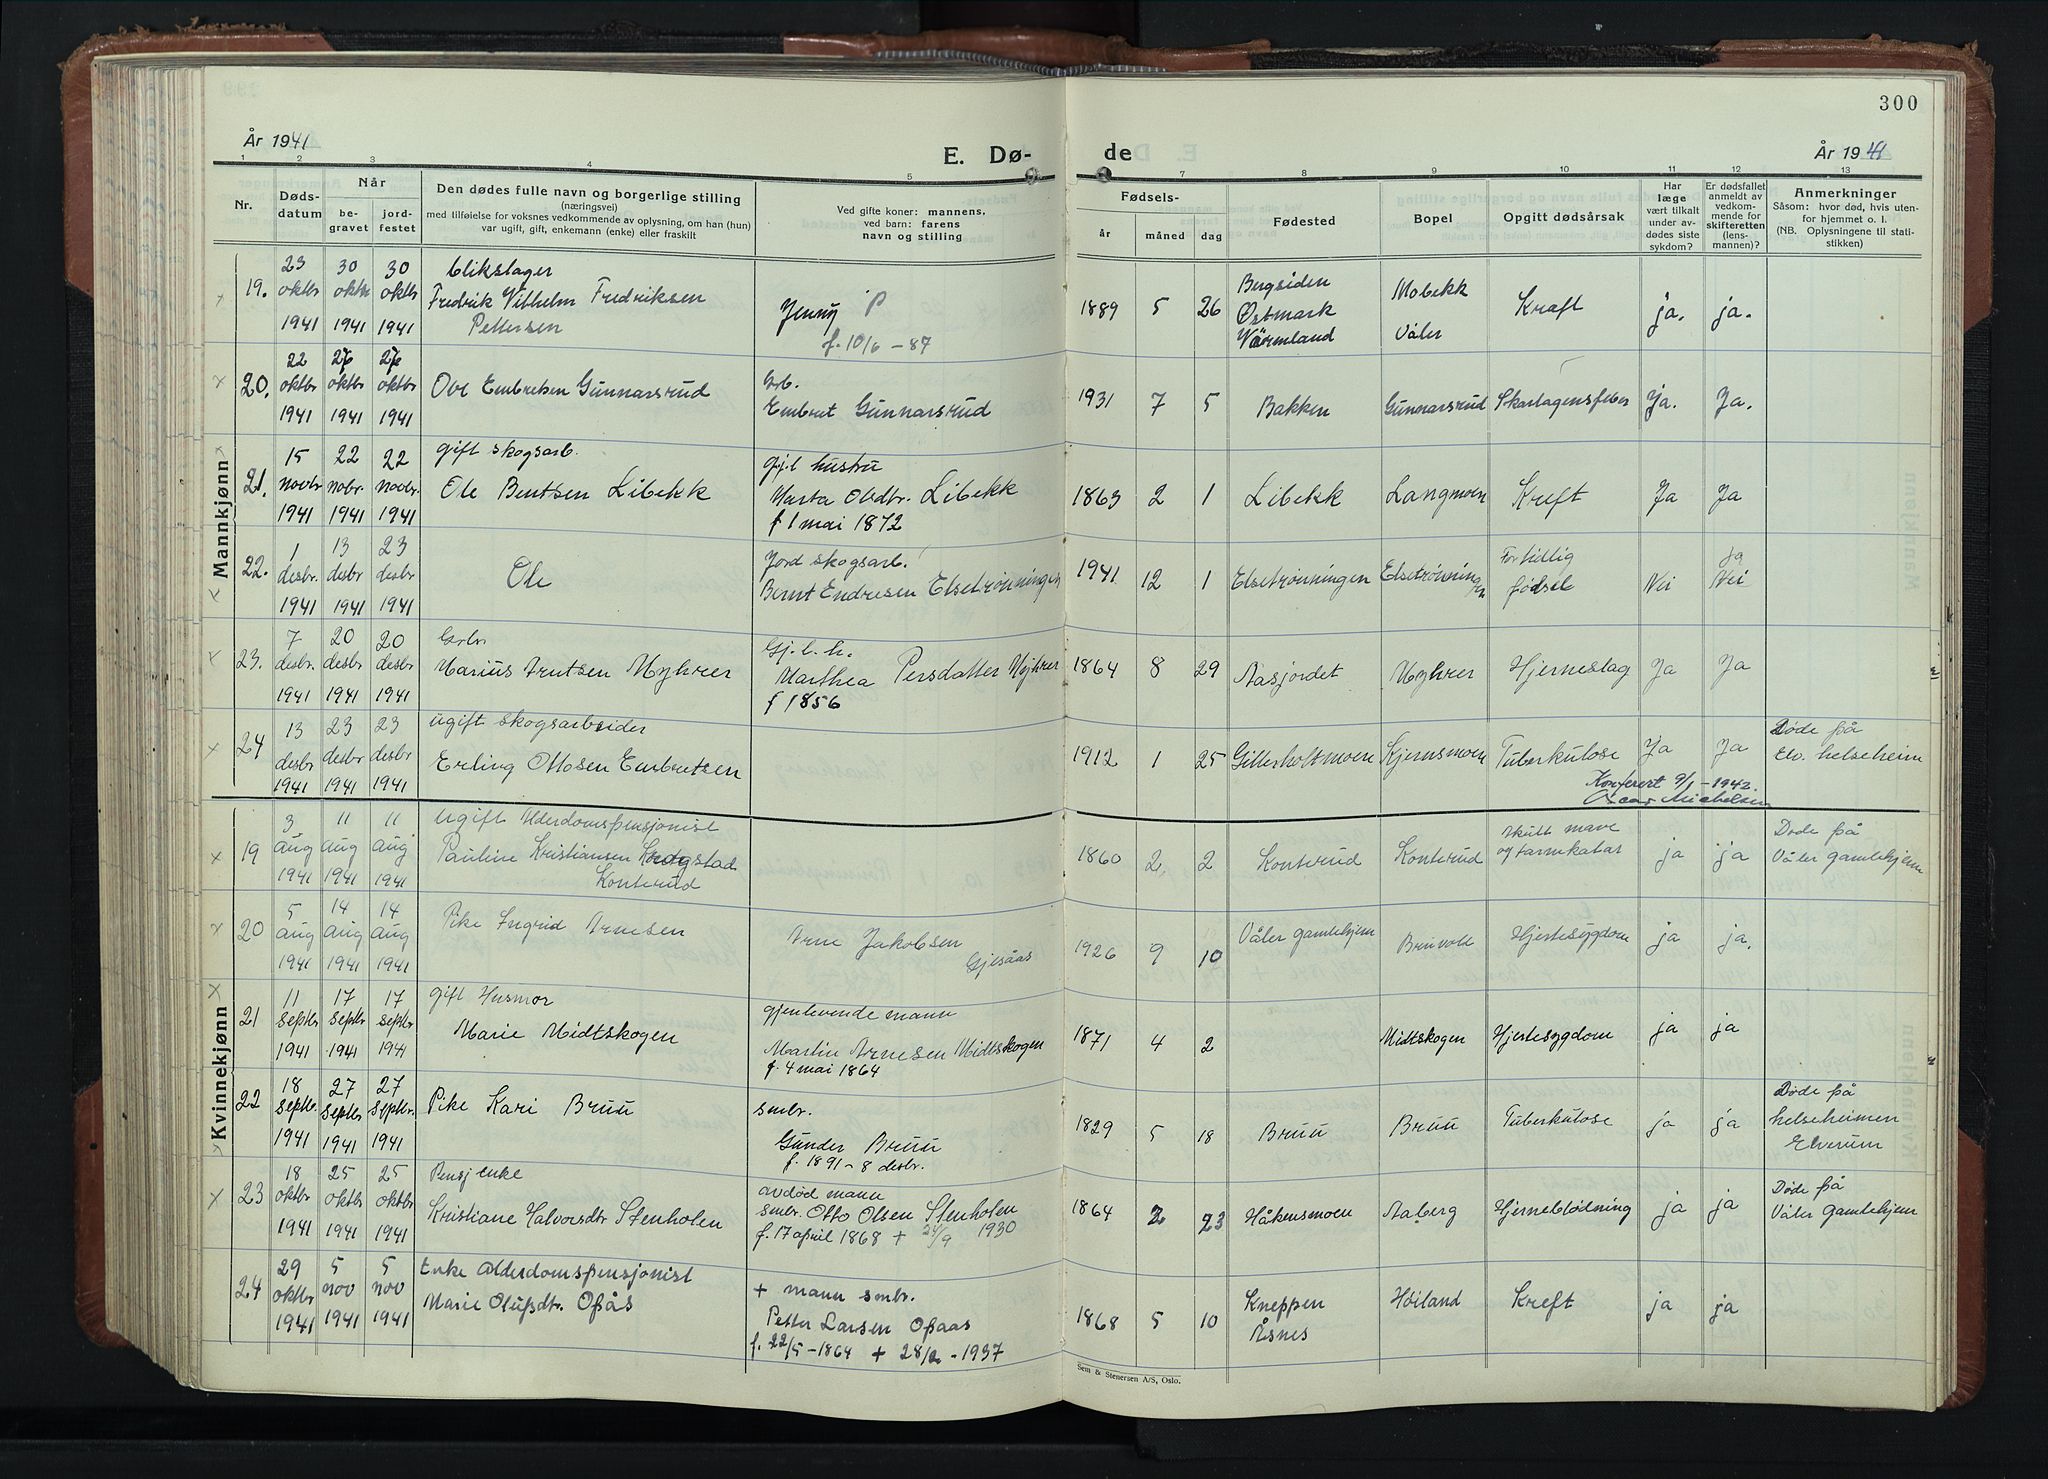 300
År 1941
E. Dø-
de
År 1941
1 2 3 4 5 7 8 9 10 11 12 13
Nr.
Døds-
datum
Når
be-
gravet
jord-
festet
Den dødes fulle navn og borgerlige stilling
(næringsvei)
med tilføielse for voksnes vedkommende av oplysning, om han (hun)
var ugift, gift, enkemann (enke) eller fraskilt
Ved gifte koner: mannens,
ved barn: farens
navn og stilling
Fødsels-
år måned dag
Fødested
Bopel
Opgitt dødsårsak
Har
læge
vært tilkalt
under av-
dødes siste
sykdom?
Er dødsfallet
anmeldt av
vedkom-
mende for
skifteretten
(lens-
mannen)?
Anmerkninger
Såsom: hvor død, hvis uten-
for hjemmet o. l.
(NB. Oplysningene til stati-
stikken)
Mannkjønn
19.
23 oktbr 1941
30 oktbr 1941
30 oktbr 1941
blikslager
Fredrik Vilhelm Fredriksen
Pettersen
Jenny P
f. 10/6 - 87
1889 5 26
Bergsiden
Østmark
Värmland
Mobekk
Våler
Kræft
ja. ja.
20.
22 oktbr 1941
26 oktbr 1941
26 oktbr 1941
Ove Embretsen Gunnarsrud
Grb.
Embret Gunnarsrud
1931 7 5
Bakken
Gunnarsrud
Skarlagensfeber
Ja. Ja.
21.
15 novbr 1941
22 nobr. 1941
22 novbr. 1941
gift skogsarb.
Ole Bentsen Libekk
Gjl hustru
Marta Olsdtr. Libekk
f 1 mai 1872
1863 2 1
Libekk
Langmoen
Kreft
Ja Ja
22.
1 desbr. 1941
13 desbr 1941
23 desbr 1941
Ole
Jord skogsarb.
Bernt Endresen Elsetrønningen
1941 12 1
Elsetrønningen
Elsetrønningen
For tidlig
fødsel
Nei
ja
Nei
23.
7 desbr. 1941
20 desbr 1941
20 desbr 1941
Grbr.
Marius Arntsen Myhrer
Gj. l. h.
Marthea Persdatter Myhrer
f 1856
1864 8 29
Aasjordet
Myhrer
Hjerneslag
Ja Ja
24
13 desbr 1941
23 desbr 1941
23 desbr 1941
ugift skogsarbeider
Erling Ottosen Embretsen
1912 1 25
Gitterholtmoen
Kjernsmoen
Tuberkulose
Ja Ja
Døde på
Elv. helseheim
Konferert 9/1-1942.
Oscar Michelsen
Kvinnekjønn
19
3 aug 1941
11 aug 1941
11 aug 1941
Ugift Alderdomspensjonist
Pauline Kristiansen Krogstad
Konterud
1860 2 2
Konterud
Konterud
Akutt mave
og tarmkatar
ja ja
Døde på
Våler gamlehjem
20
5 aug 1941
14 aug 1941
14 aug 1941
Pike Ingrid Arnesen
Arne Jakobsen
Gjesåas
1926 9 10
Våler gamlehjem
Bruvoll
Hjertesygdom
ja ja.
21
11 septbr 1941
17 septbr 1941
17 septbr 1941
gift Husmor
Marie Midtskogen
gjenlevende mann
Martin Arnesen Midtskogen
f. 4 mai 1864
1871 4 2
Midtskogen
Hjertesygdom
ja ja
22
18 septbr. 1941
27 septbr 1941
27 septbr. 1941
Pike Kari Bruu
smbr.
Gunder Bruu
f. 1891 - 8 desbr.
1829 5 18
Bruu
Bruu
Tuberkulose
ja ja
Døde på
helseheimen
Elverum
23
18 oktbr 1941
25 oktbr 1941
25 oktbr 1941
Pensj enke
Kristiane Halvorsdtr Stenholen
avdød mann
smbr. Otto Olsen Stenholen
f. 17 april 1868 + 24/9 1930
1864 2 23
Håkensmoen
Aaberg
Hjerneblødning
ja ja
Døde på
Våler gamlehjem
24
29 oktbr 1941
5 nov 1941
5 nov 1941
Enke Alderdomspensjonist
Marie Olufsdtr. Opås
+ mann smbr.
Petter Larsen Opaas
f. 22/5 - 1864 + 28/2 - 1937
1868 5 10
Kneppen
Åsnes
Høiland
Kreft
ja ja
Sem & Stenersen A/S, Oslo.